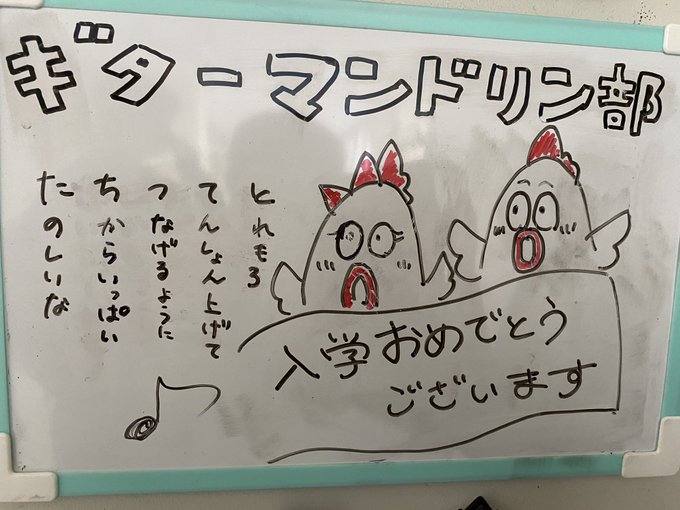 ギターマンドリン部
とれもろ
てんしょん上げて
つなげるように
ちからいっぱい
たのしいな
入学おめでとう
ございます